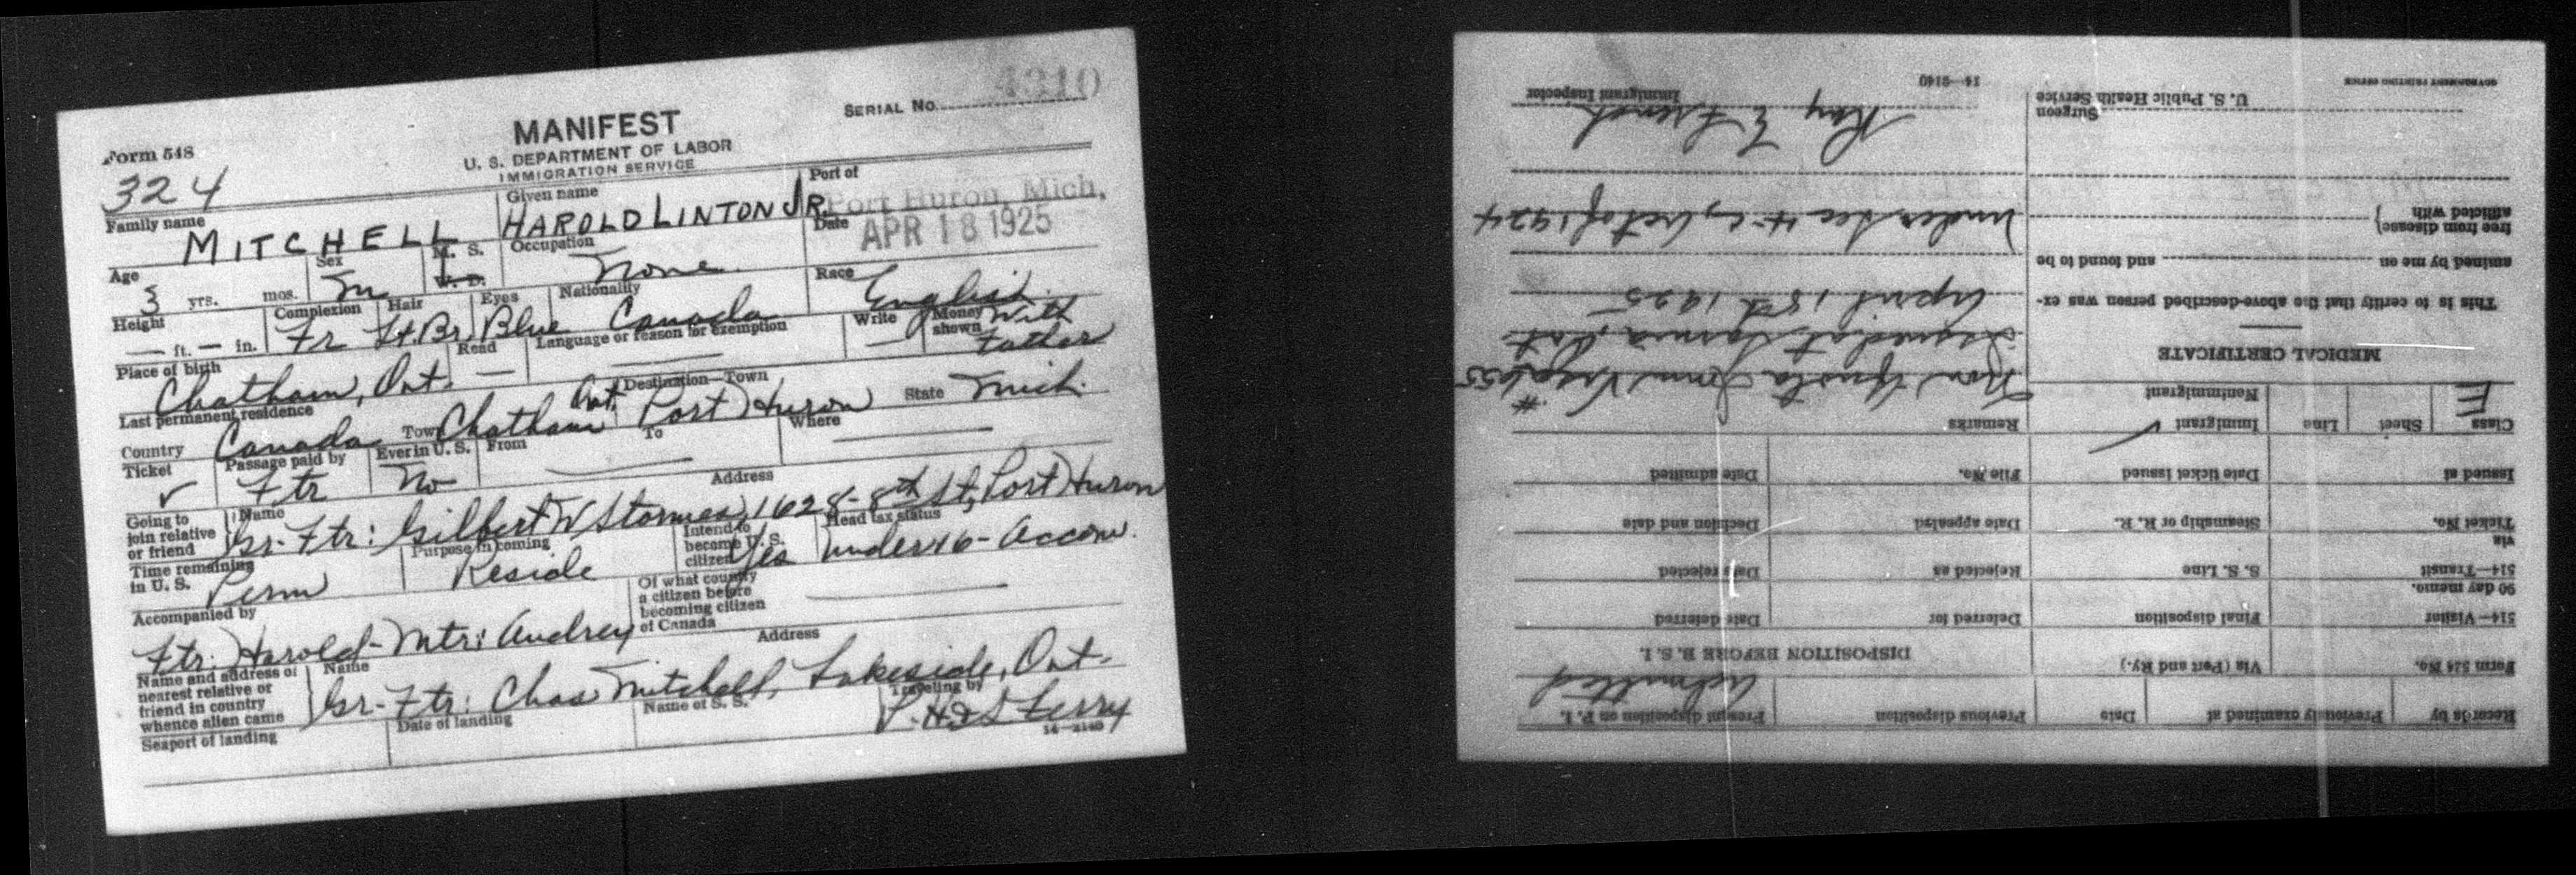 Form 548
MANIFEST
SERIAL No. 4310
U. S. DEPARTMENT OF LABOR
IMMIGRATION SERVICE
324
Family name MITCHELL Given name HAROLD LINTON JR. Port of Port Huron, Mich,
Date APR 18 1925
Age 3 yrs. mos. Sex M M. S. W. D. Occupation None Race English
Height — ft. — in. Complexion Fr Hair Lt. Br. Eyes Blue Nationality Canada
Place of birth Chatham, Ont. Read — Language or reason for exemption Write — Money shown With Father
Last permanent residence Destination—Town
Country Canada Town Chatham Ont. Port Huron State Mich.
Ticket ✓ Passage paid by Ftr Ever in U. S. No From To Where
Going to join relative or friend Name Address
Gr-Ftr: Gilbert W Stormes, 1628-8th St, Port Huron
Time remaining in U. S. Perm Purpose in coming Reside Intend to become U. S. citizen Yes Head tax status under 16- Accom.
Accompanied by Ftr: Harold- Mtr: Audrey Of what country a citizen before becoming citizen of Canada
Name and address of nearest relative or friend in country whence alien came Name Address
Gr-Ftr: Chas Mitchell, Lakeside, Ont.
Seaport of landing Date of landing Name of S. S. Traveling by P.H.&S Ferry
14—2140
Records by Previously examined at Date Previous disposition Present disposition on P. I. Admitted
Form 524 No. Via (Port and Ry.) DISPOSITION BEFORE B. S. I.
514—Visitor 90 day memo. Final disposition Deferred for Date deferred
514—Transit via S. S. Line Rejected as Date rejected
Ticket No. Steamship or R. R. Date appealed Decision and date
Issued at Date ticket issued File No. Date admitted
Class E Sheet Line Immigrant ✓ Nonimmigrant Remarks
Non Quota Imm Visa #
MEDICAL CERTIFICATE
Issued at Sarnia, Ont
This is to certify that the above-described person was ex-
April 18th 1925
amined by me on and found to be
free from disease
afflicted with
under Sec 4-c, Act of 1924
Surgeon
U. S. Public Health Service
Ray E French
Immigrant Inspector
GOVERNMENT PRINTING OFFICE
14—2140